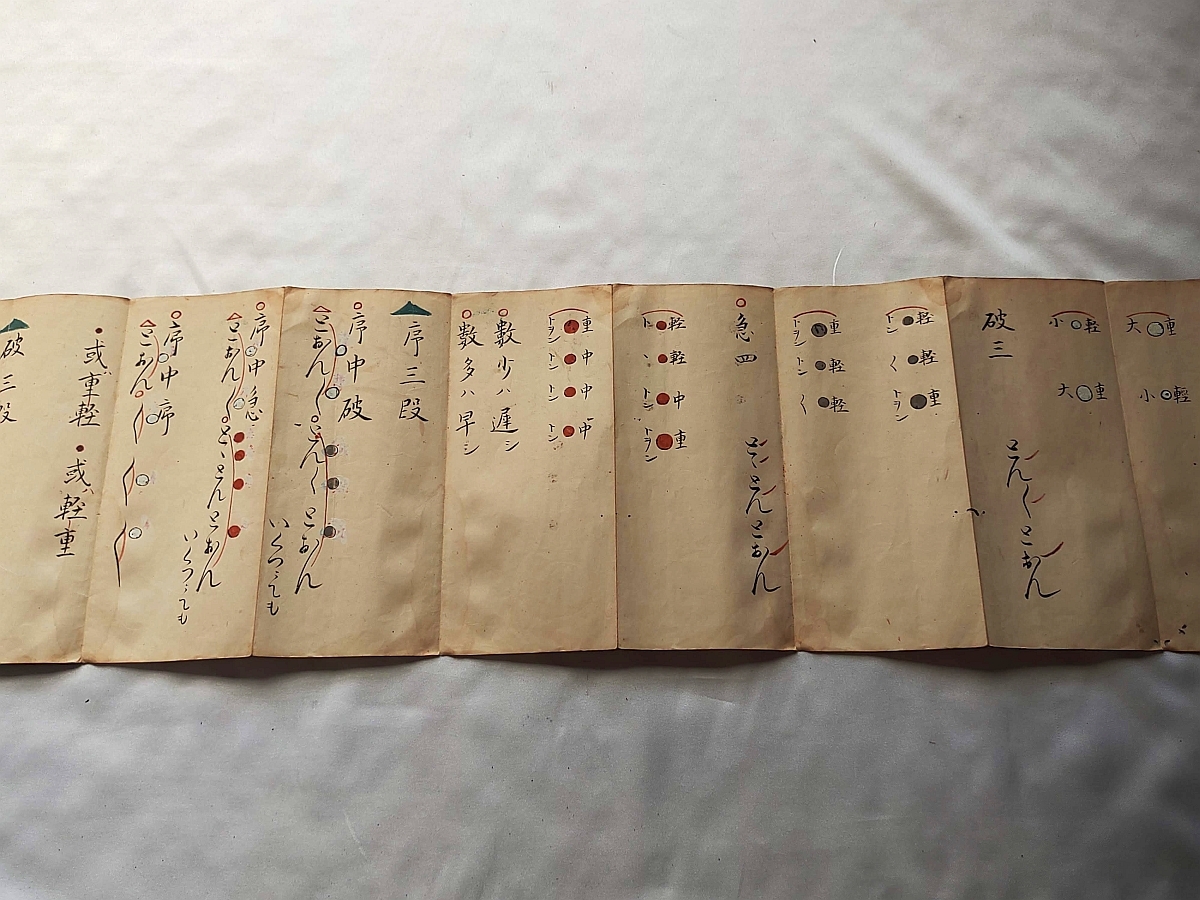 大 重
小 軽
小 軽
大 重
破三
とんくとおん
トン 軽
く 軽
トヲン 重
トヲン 重
トン 軽
く 軽
急四
とゝとんとおん
ト 軽
ヽ 軽
トン 中
トヲン 重
トヲン 重
トン 中
トン 中
トン 中
数少ハ遅シ
数多ハ早シ
序三段
序中破
とおんくとんくとおん
いくつゝても
序中急
とおんくとゝとんとおん
いくつゝても
序中序
とおん
或重軽
或ハ軽重
破三段